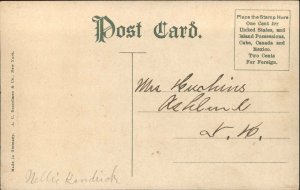 Post Card.
Place the Stamp Here
One Cent for
United States, and
Island Possessions,
Cuba, Canada and
Mexico.
Two Cents
For Foreign.
Mrs Huckins
Ashland
N. H.
Made in Germany.
New York.
Nellie Kendrick